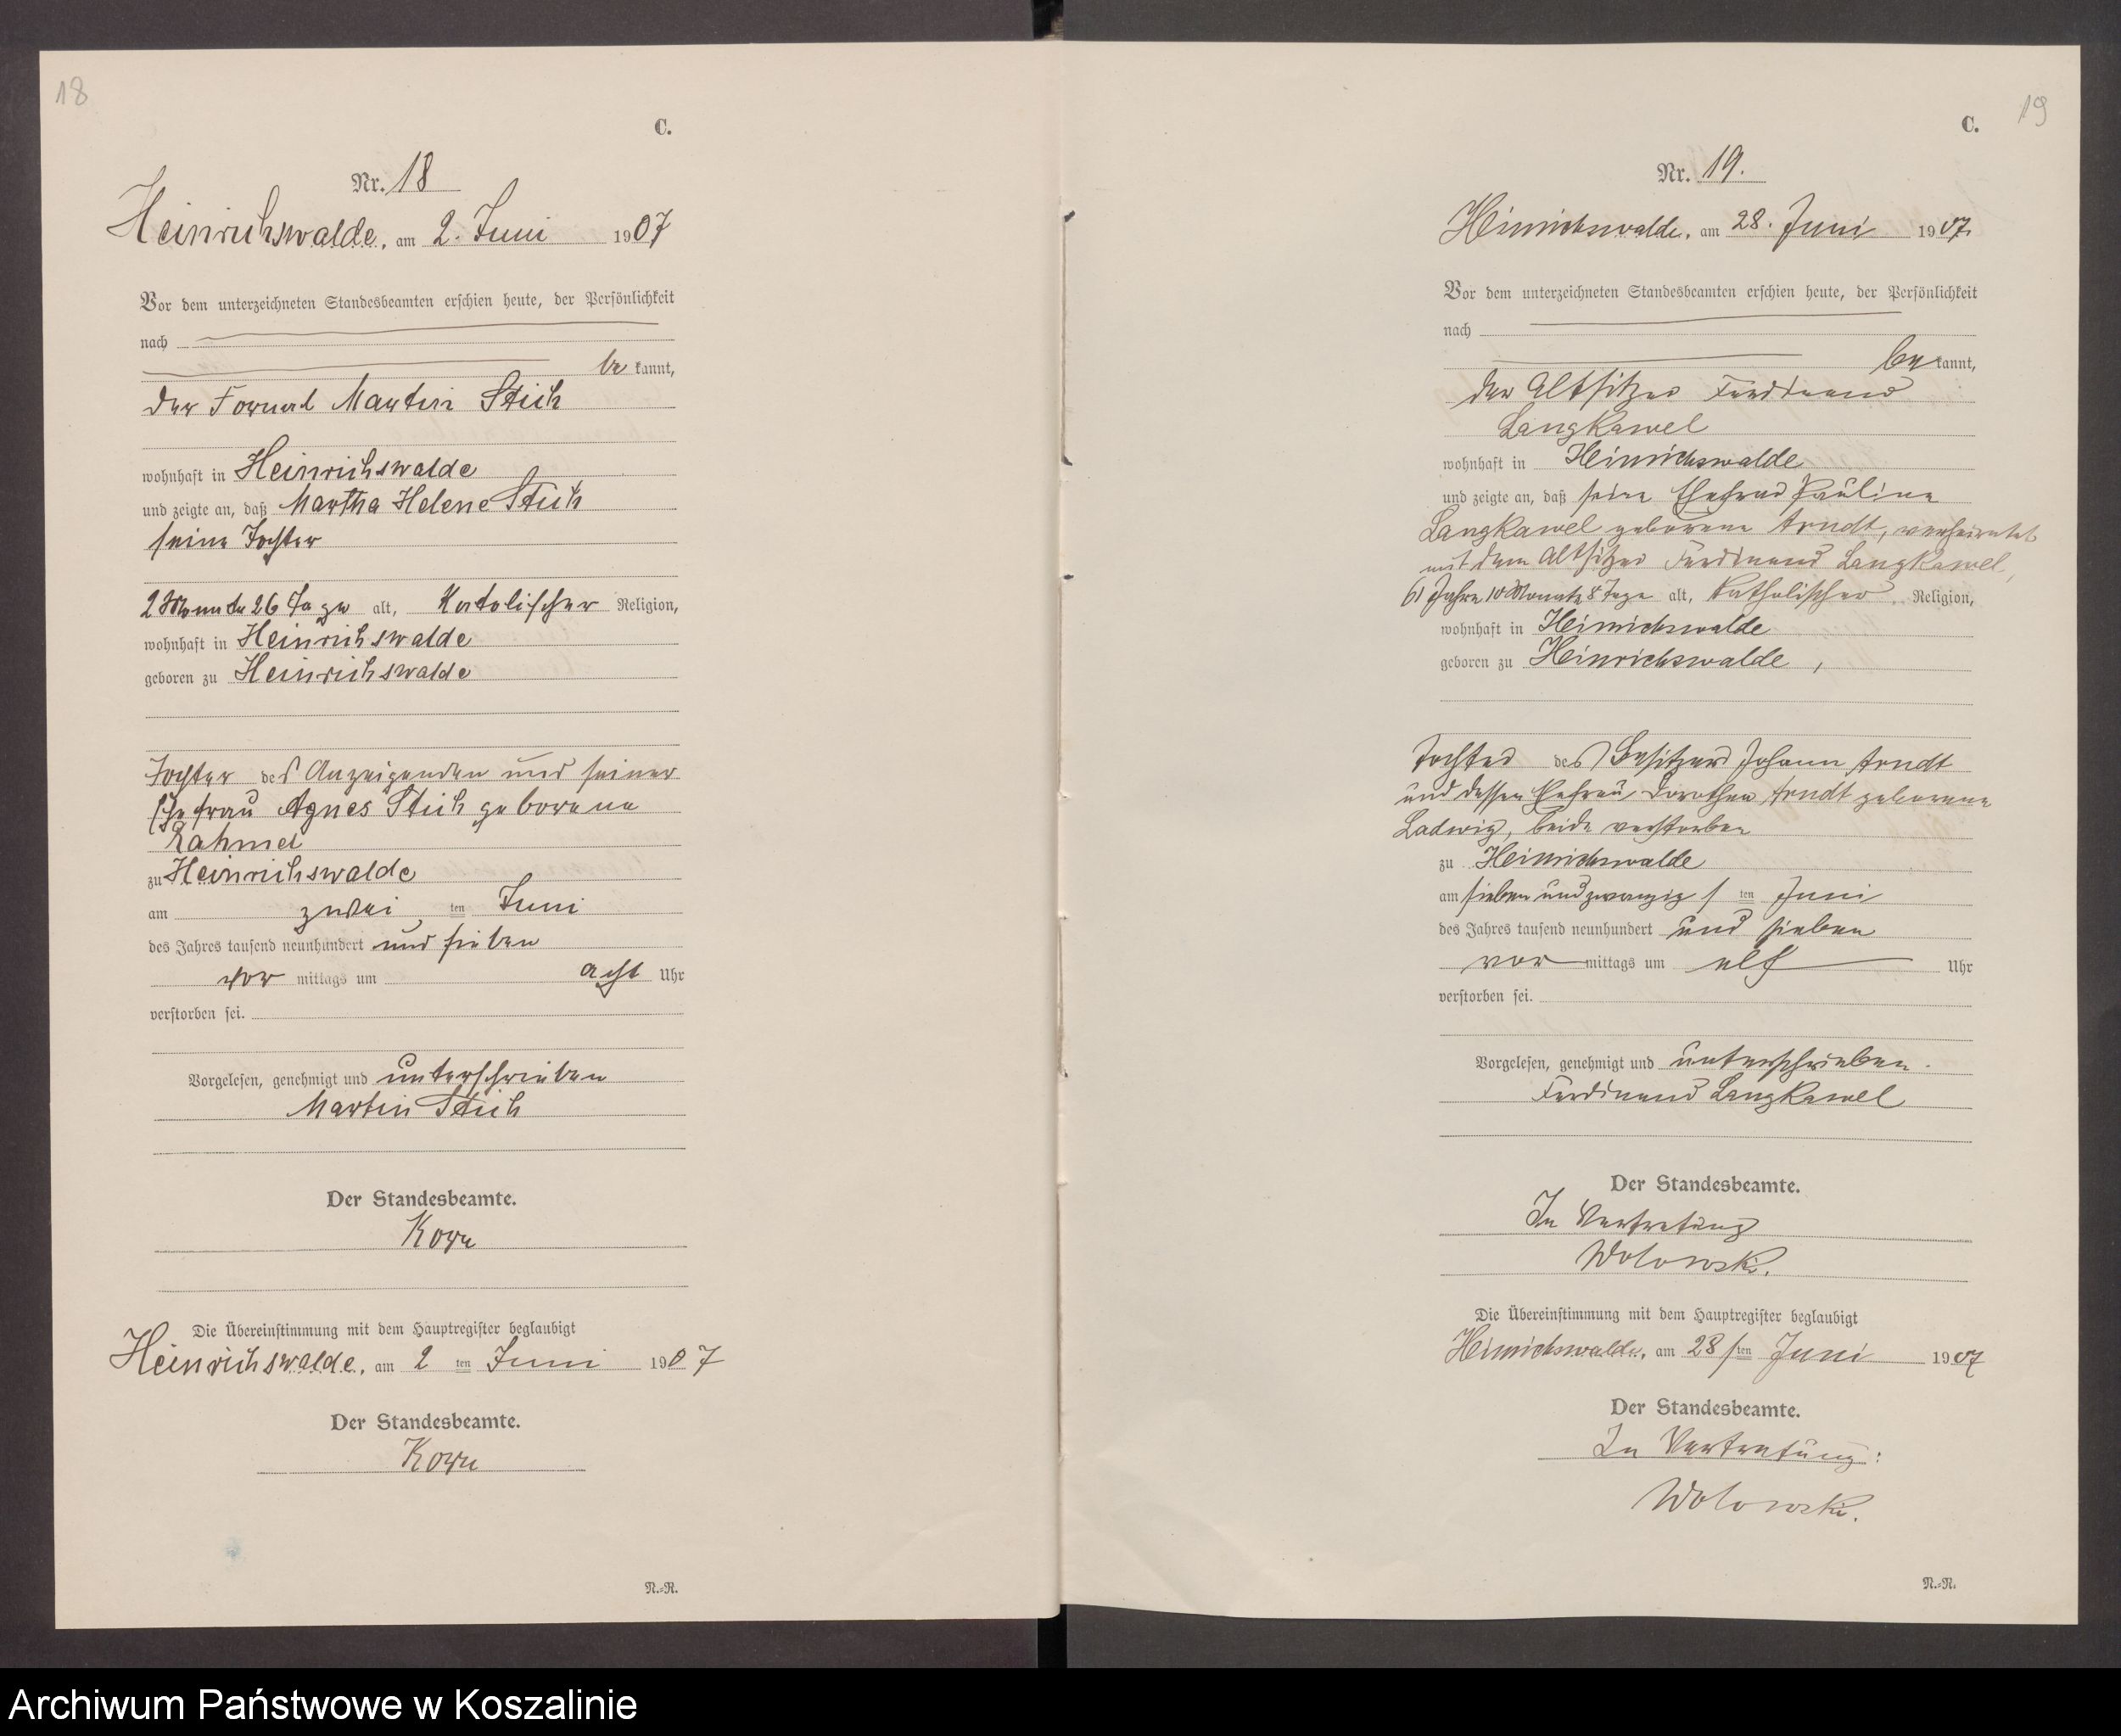 18
C.
Nr. 18
Heinrichswalde, am 2. Juni 1907
Vor dem unterzeichneten Standesbeamten erschien heute, der Persönlichkeit
nach
be kannt,
der Fornal Martin Stich
wohnhaft in Heinrichswalde
und zeigte an, daß Martha Helene Stich
seine Tochter
2 Monate 26 Tage alt, Katolischer Religion,
wohnhaft in Heinrichswalde
geboren zu Heinrichswalde
Tochter des Anzeigenden und seiner
Ehefrau Agnes Stich geborene
Rahmel
zu Heinrichswalde
am zwei ten Juni
des Jahres tausend neunhundert und sieben
vor mittags um acht Uhr
verstorben sei.
Vorgelesen, genehmigt und unterschrieben
Martin Stich
Der Standesbeamte.
Die Übereinstimmung mit dem Hauptregister beglaubigt
Heinrichswalde, am 2 ten Juni 1907
Der Standesbeamte.
N.=R.
19
C.
Nr. 19.
Heinrichswalde, am 28. Juni 1907.
Vor dem unterzeichneten Standesbeamten erschien heute, der Persönlichkeit
nach
be kannt,
der Altsitzer Ferdinand
Langkawel
wohnhaft in Heinrichswalde
und zeigte an, daß seine Ehefrau Pauline
Langkawel geborene Arndt, verheiratet
mit dem Altsitzer Ferdinand Langkawel,
61 Jahre 10 Monate 8 Tage alt, katholischer Religion,
wohnhaft in Heinrichswalde
geboren zu Heinrichswalde,
Tochter des Besitzers Johann Arndt
und dessen Ehefrau Dorothea Arndt geborene
Ladwig, beide verstorben
zu Heinrichswalde
am sieben und zwanzigsten Juni
des Jahres tausend neunhundert und sieben
vor mittags um elf Uhr
verstorben sei.
Vorgelesen, genehmigt und unterschrieben.
Ferdinand Langkawel
Der Standesbeamte.
In Vertretung
Wolowski.
Die Übereinstimmung mit dem Hauptregister beglaubigt
Heinrichswalde, am 28 sten Juni 1907
Der Standesbeamte.
In Vertretung:
Wolowski.
N.=R.
Archiwum Państwowe w Koszalinie